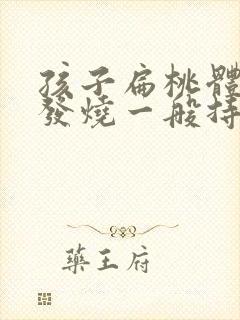 孩子扁桃體
發燒一般持
藥王府